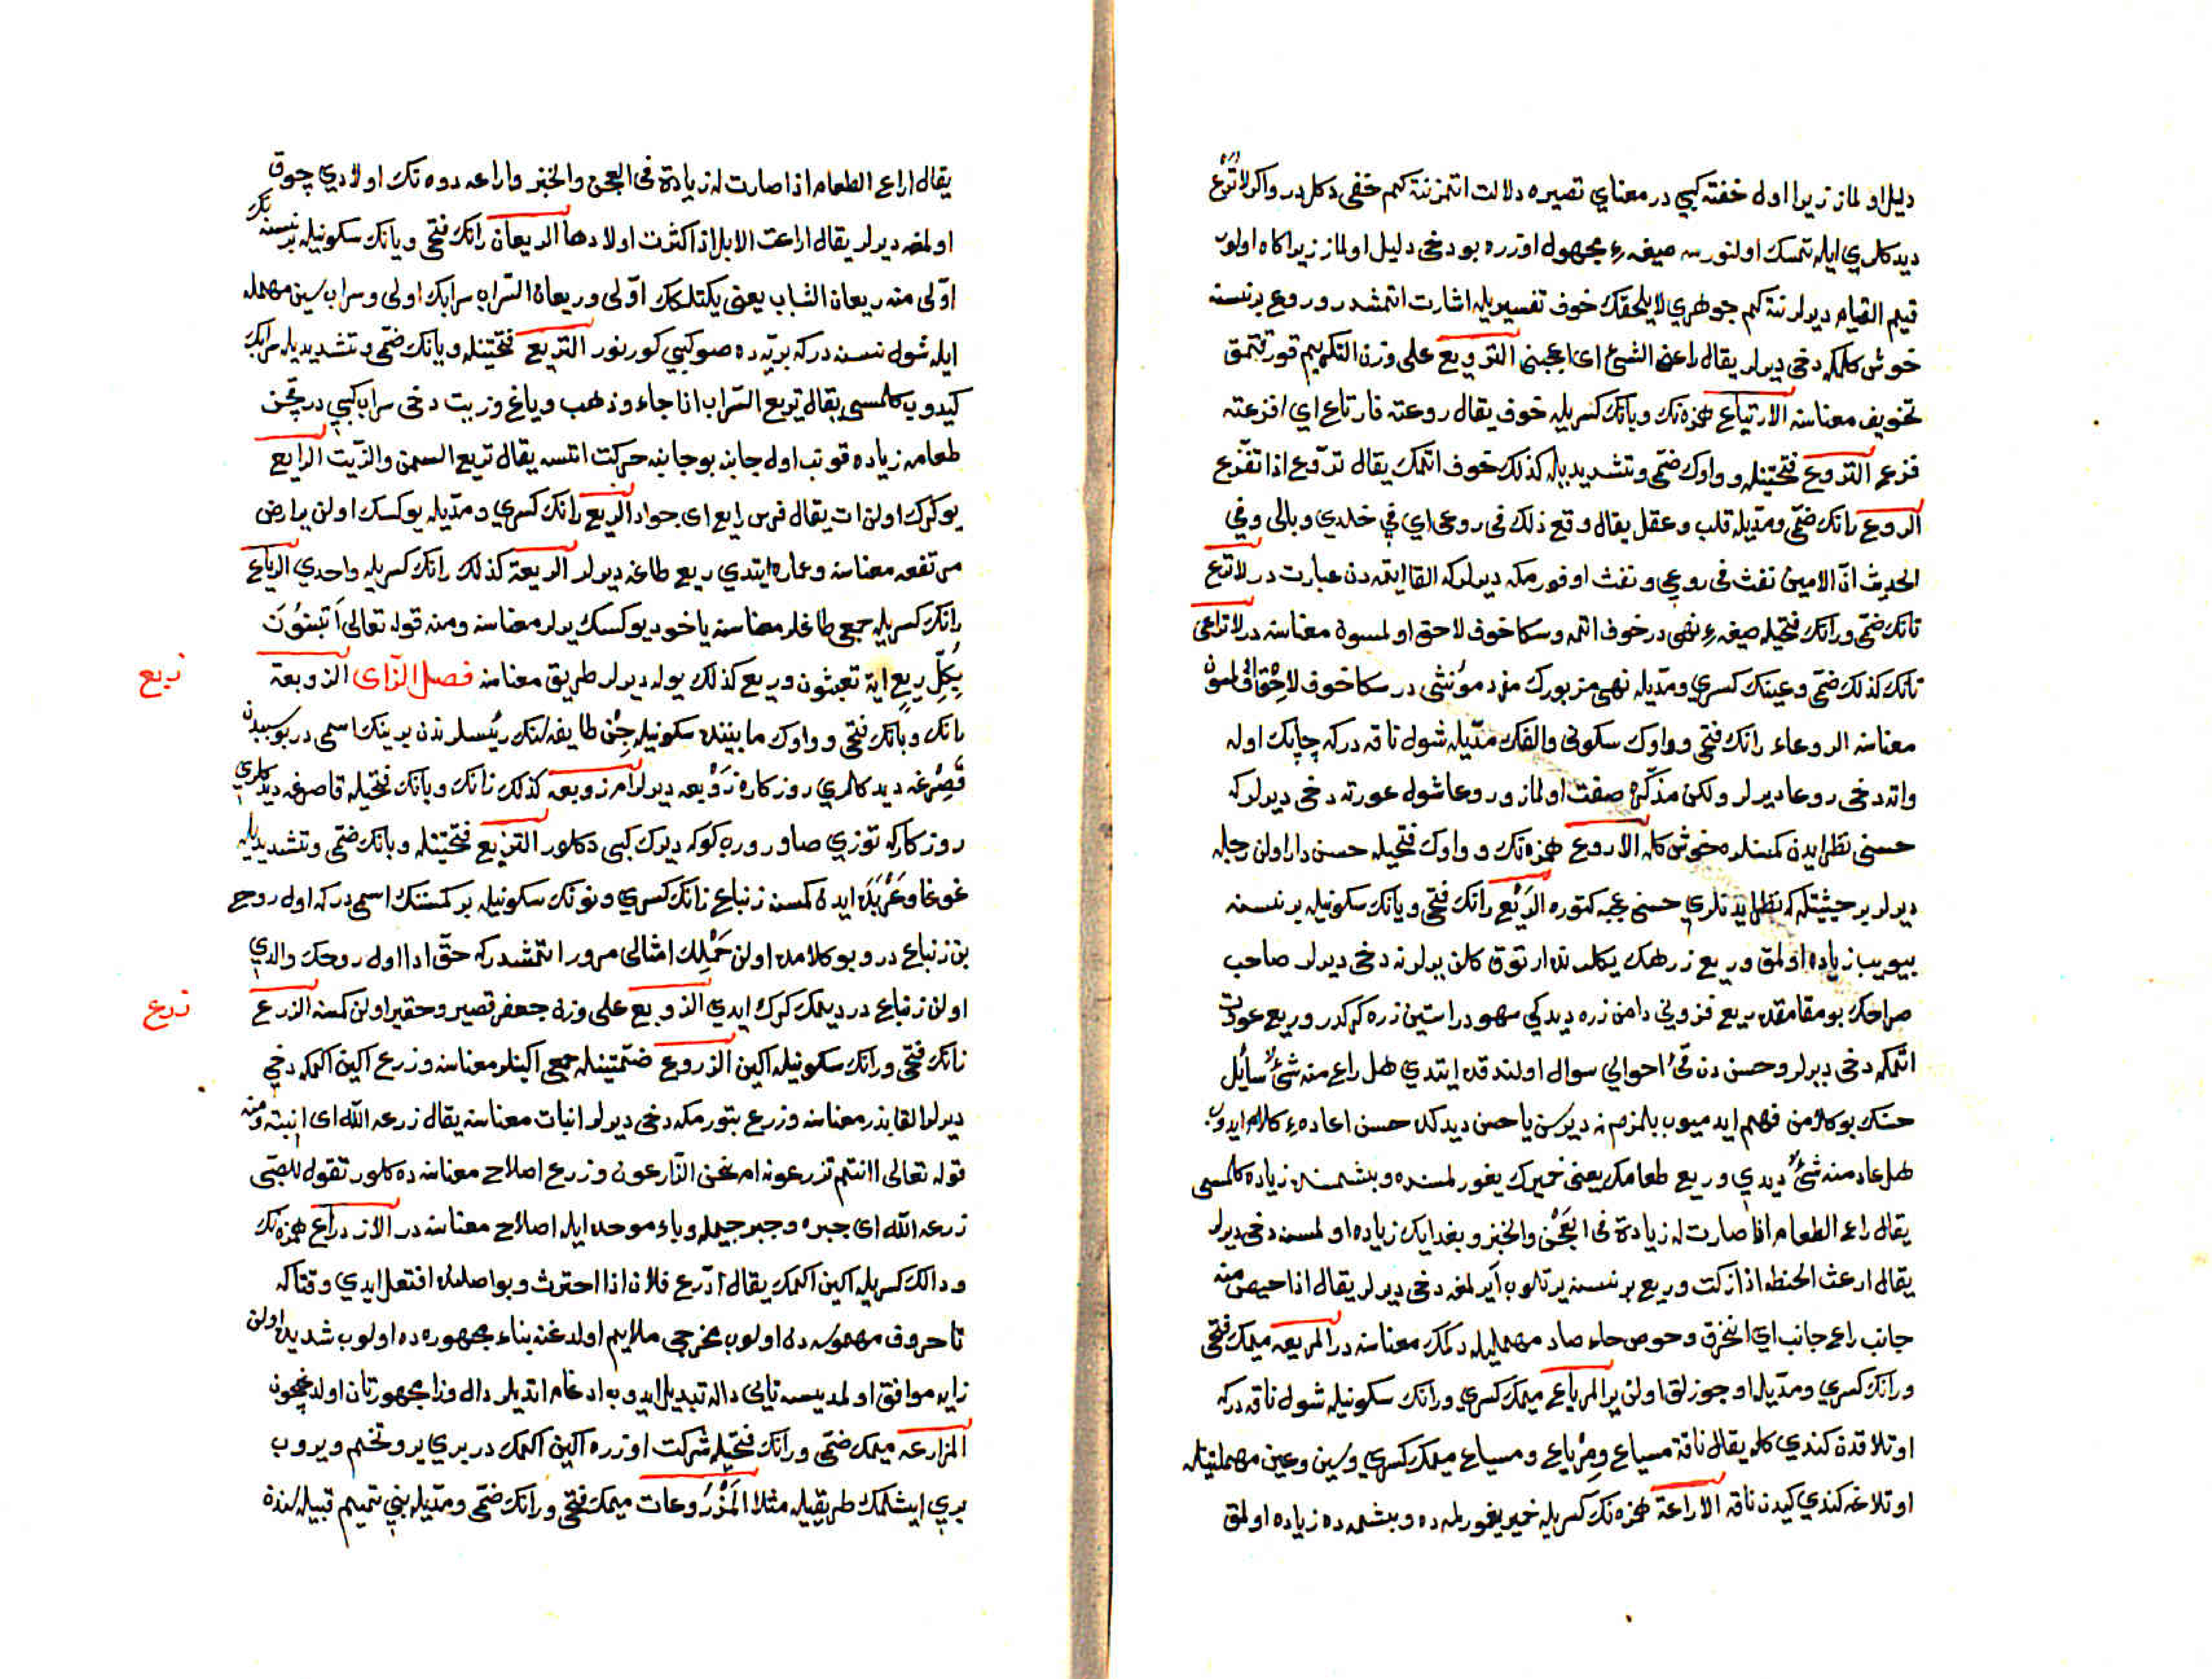 دليل اولماز زيرا اول خفته كبي در معناي تصيره دلالت اتمز نته كم خفى دكلدر واكر لا ترع
ديدكلري ايله تمسك اولنورسه صيغهء مجهول اوزره بو دخى دليل اولماز زيرا كاه اولور
قيم القيام ديرلر نته كم جوهري لا يلحقك خوف تفسيريله اشارت اتمشدر وروع بر نسنه
خوش كلمكه دخى ديرلر يقال راعنى الشئ اى اعجبنى الترويع على وزن التكريم قورقتمق
تخويف معناسنه الارتياع همزه نك ويانك كسريله خوف يقال روعته فارتاع اي افزعته
ففزع التروع فتحتينله وواوك ضمى وتشديديله كذلك خوف اتمك يقال تروع اذا تفزع
الروع رانك ضمى ومديله قلب وعقل يقال وقع ذلك فى روعى اي في خلدي وبالى وفي
الحديث ان الامين نفث فى روعي ونفث اوفورمكه ديرلر كه القا ايتمدن عبارت در لا ترع
تانك ضمى ورانك فتحيله صيغهء نهى در خوف اتمه وسكا خوف لاحق اولمسون معناسنه در لا تراعى
تانك كذلك ضمى وعينك كسري ومديله نهى مزبورك مفرد مؤنثى در سكا خوف لاحق اولمسون
معناسنه الروعاء رانك فتحى وواوك سكونى والفك مديله شول ناقه در كه چاپك اوله
واته دخى روعا ديرلر ولكن مذكره صفت اولماز وروعا شول عورته دخى ديرلر كه
حسنى نظر ايدن كمسنلره خوش كله الاروع همزه نك وواوك فتحيله حسن دار اولن رجله
ديرلر بر حيثيتله كه نظر ايدنلري حسنى عجبه كتوره الريع رانك فتحى ويانك سكونيله بر نسنه
بيويب زياده اولمق وريع زرهك يكلرندن ارتوق كلن يرلرنه دخى ديرلر صاحب
صراحك بو مقامده ريع فزونى دامن زره ديدكي سهودر استين زره كركدر وريع عودت
اتمكه دخى ديرلر وحسن دن قئ احوالي سوال اولندقده ايتدي هل راع منه شئ سائل
حسنك بو كلامن فهم ايدميوب بلمزم نه ديرسن يا حسن ديدكده حسن اعادهء كلام ايدوب
هل عاد منه شئ ديدي وريع طعامك يعنى خميرك يغورلمسنده وبشمسنده زياده كلمسى
يقال راع الطعام اذا صارت له زيادة فى العجن والخبز وبغدايك زياده اولمسنه دخى ديرلر
يقال ارعت الحنطه اذا زكت وريع بر نسنه يرتلوب آيرلمغه دخى ديرلر يقال اذا حيص منه
جانب راع جانب اي انخرق وحوص حاء صاد مهمليله دكمك معناسنه در المريعه ميمك فتحى
ورانك كسري ومديله اوجوزلق اولن ير المرياع ميمك كسري ورانك سكونيله شول ناقه در كه
اوتلاقدن كندي كله يقال ناقة مسياع ومرياع ومسياع ميمك كسري وسين وعين مهملتينله
اوتلاغه كندي كيدن ناقه الاراعة همزه نك كسريله خمير يغورلمه ده وبشمه ده زياده اولمق
يقال اراع الطعام اذا صارت له زيادة فى العجن والخبز واراعه دوه نك اولادي چوق
اولمغه ديرلر يقال اراعت الابل اذا كثرت اولادها الريعان رانك فتحى ويانك سكونيله بر نسنه نك
اولى منه ريعان الشباب يعنى يكتلكك اولى وريعان السراب سرابك اولى وسراب سين مهمله
ايله شول نسنه در كه بريه ده صو كبي كورنور التريع فتحتينله ويانك ضمى وتشديديله سرابك
كيدوب كلمسى يقال تريع السراب اذا جاء وذهب وياغ وزيت دخى سراب كبي در قچن
طعامه زياده قونب اول جانبه بو جانبه حركت اتسه يقال تريع السمن والزيت الرايع
يوكرك اولن ات يقال فرس رايع اى جواد الريع رانك كسري ومديله يوكسك اولن ير ارض
مرتفعه معناسنه وعماره ايتدي ريع طاغه ديرلر الريعة كذلك رانك كسريله واحدي الرياع
رانك كسريله جمعى طاغلر معناسنه ياخود يوكسك يرلر معناسنه ومنه قوله تعالى اتبنون
بكل ريع اية تعبثون وريع كذلك يوله ديرلر طريق معناسنه فصل الزاى الزوبعة
زبع
زانك وبانك فتحى وواوك مابينده سكونيله جن طايفه لرنك رئيسلرندن برينك اسمى در بو سببدن
قصرغه ديدكلري روزكاره زوبعه ديرلر ام زوبعه كذلك زانك وبانك فتحيله قاصرغه ديدكلري
روزكار كه توزي صاورور كوكه ديرك كبى دكلور التزبع فتحتينله وبانك ضمى وتشديديله
غوغا وعربده ايدن كمسنه زنباع زانك كسري ونونك سكونيله بر كمسنك اسمى در كه اول روح
بن زنباع در وبو كلامده اولن خملك امثالى مرور اتمشدر كه حق ادا اول روحك والدي
اولن زنباع در ديمك كرك ايدي الزوبع على وزن جعفر قصير وحقير اولن كمسنه الزرع
زرع
زانك فتحى ورانك سكونيله اكين الزروع ضمتينله جمعى اكينلر معناسنه وزرع اكين اكمكه دخي
ديرلر القا بذر معناسنه وزرع بتورمكه دخى ديرلر انبات معناسنه يقال زرعه الله اى انبته ومنه
قوله تعالى اانتم تزرعونه ام نحن الزارعون وزرع اصلاح معناسنه ده كلور تقول للصبى
زرعه الله اى جبره وجبر جيمله وباء موحده ايله اصلاح معناسنه در الازدراع همزه نك
ودالك كسريله اكين اكمك يقال ازدرع فلان اذا احترث وبو اصلنده افتعل ايدي وقتاكه
تا حروف مهموسه دن اولوب مخرجى ملايم اولدغنه بناء مجهوره ده اولوب شديد اولن
زايه موافق اولمديسه تايى داله تبديل ايدوب ادغام ايتديلر دال وزا مجهورتان اولدغيچون
المزارعه ميمك ضمى ورانك فتحيله شركت اوزره اكين اكمك در بري ير وتخم ويروب
بري ايشلمك طريقيله مثلا المزروعات ميمك فتحى ورانك ضمى ومديله بني تميم قبيله سنده